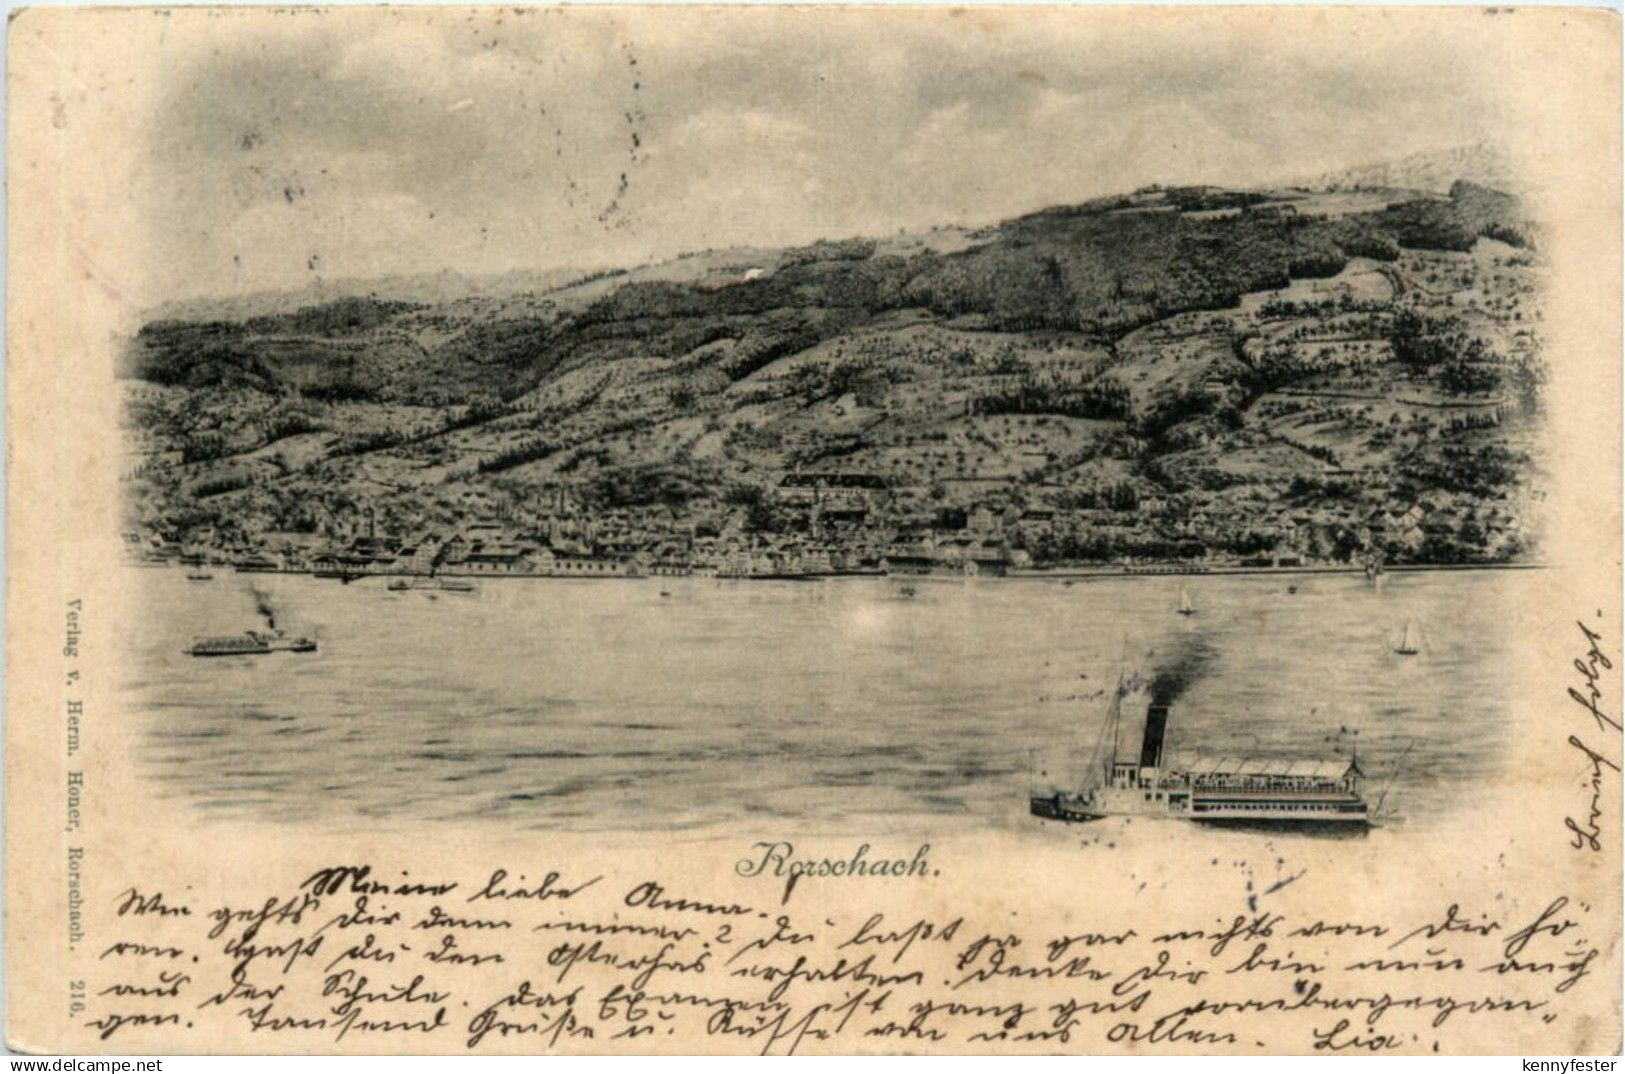 Rorschach.
Meine liebe Anna.
Wie gehts Dir denn immer? Du laßt ja gar nichts von Dir hö-
ren. Hast du den Osterhas erhalten. Denke Dir bin nun auch
aus der Schule. Das Examen ist ganz gut vorübergegan-
gen. Tausend Grüße u. Küsse von uns Allen. Lia.
Brief folgt.
Verlag v. Herm. Honer, Rorschach. 216.
kennyfester
delcampe.net